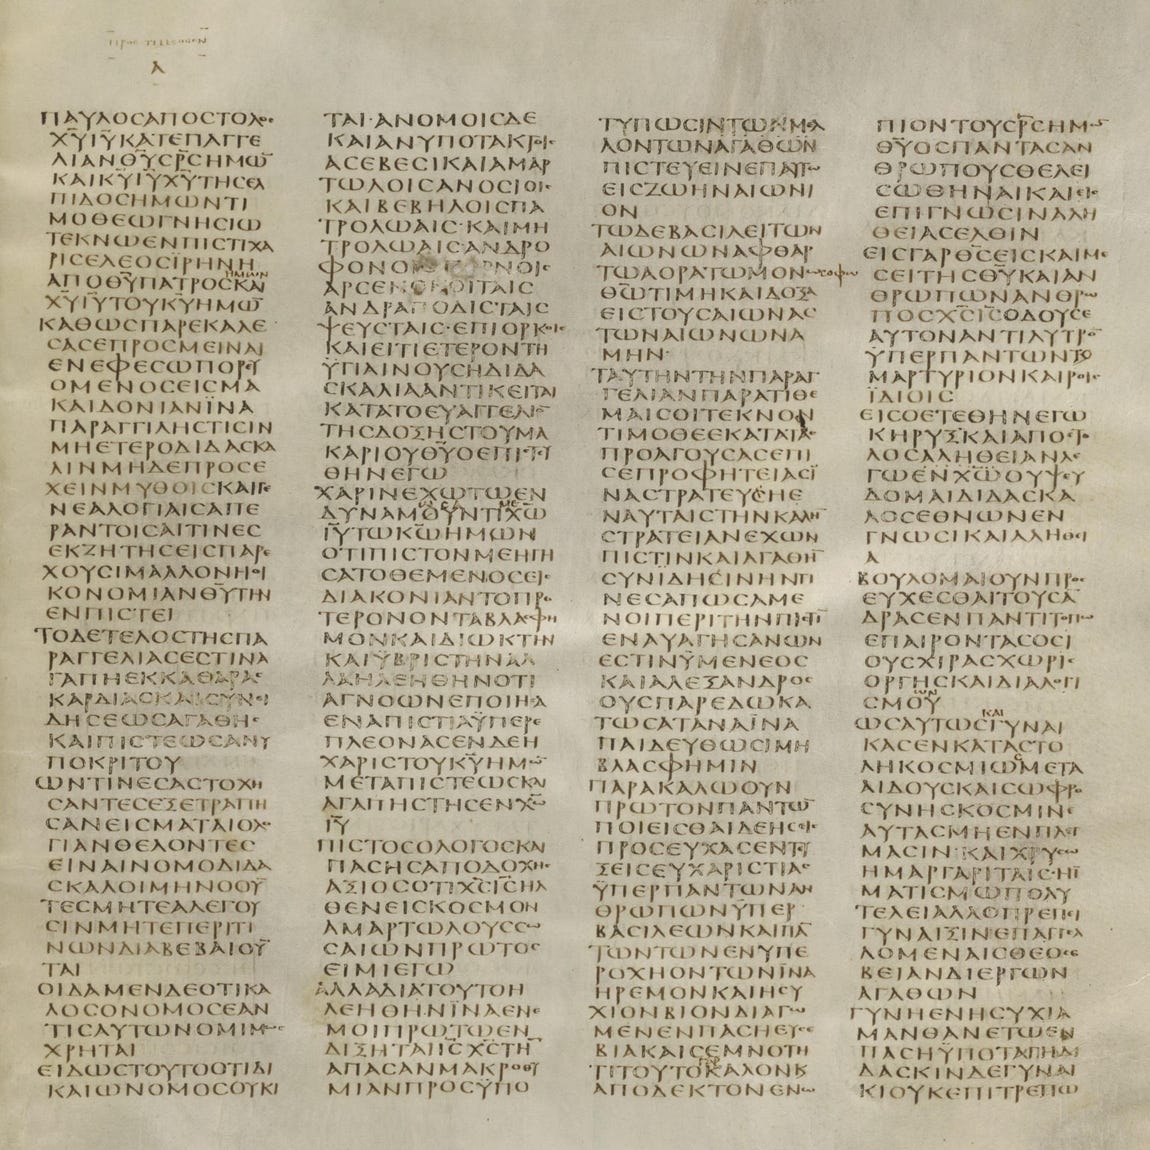 ΠΡΟΣ ΤΙΜΟΘΕΟΝ
Α
ΠΑΥΛΟCΑΠΟCΤΟΛΟC
ΧΥΙΥΚΑΤΕΠΑΓΓΕ
ΛΙΑΝΘΥCΡCΗΜΩ̅
ΚΑΙΚΥΙΥΧΥΤΗCΕΛ
ΠΙΔΟCΗΜΩΝΤΙ
ΜΟΘΕΩΓΝΗCΙΩ
ΤΕΚΝΩΕΝΠΙCΤΙΧΑ
ΡΙCΕΛΕΟCΪΡΗΝΗ
ΗΜΩΝ
ΑΠΟΘΥΠΑΤΡΟCΚΑΙ
ΧΥΙΥΤΟΥΚΥΗΜΩ̅
ΚΑΘΩCΠΑΡΕΚΑΛΕ
CΑCΕΠΡΟCΜΕΙΝΑΙ
ΕΝΕΦΕCΩΠΟΡΕΥ
ΟΜΕΝΟCΕΙCΜΑ
ΚΑΙΔΟΝΙΑΝΪΝΑ
ΠΑΡΑΓΓΙΛΗCΤΙCΙΝ
ΜΗΕΤΕΡΟΔΙΔΑCΚΑ
ΛΙΝΜΗΔΕΠΡΟCΕ
ΧΕΙΝΜΥΘΟΙCΚΑΙΓΕ
ΝΕΑΛΟΓΙΑΙCΑΠΕ
ΡΑΝΤΟΙCΑΙΤΙΝΕC
ΕΚΖΗΤΗCΕΙCΠΑΡΕ
ΧΟΥCΙΜΑΛΛΟΝΗΟΙ
ΚΟΝΟΜΙΑΝΘΥΤΗΝ
ΕΝΠΙCΤΕΙ
ΤΟΔΕΤΕΛΟCΤΗCΠΑ
ΡΑΓΓΕΛΙΑCΕCΤΙΝΑ
ΓΑΠΗΕΚΚΑΘΑΡΑC
ΚΑΡΔΙΑCΚΑΙCΥΝΕΙ
ΔΗCΕΩCΑΓΑΘΗC
ΚΑΙΠΙCΤΕΩCΑΝΥ
ΠΟΚΡΙΤΟΥ
ΩΝΤΙΝΕCΑCΤΟΧΗ
CΑΝΤΕCΕΞΕΤΡΑΠΗ
CΑΝΕΙCΜΑΤΑΙΟΛΟ
ΓΙΑΝΘΕΛΟΝΤΕC
ΕΙΝΑΙΝΟΜΟΔΙΔΑ
CΚΑΛΟΙΜΗΝΟΟΥ̅
ΤΕCΜΗΤΕΑΛΕΓΟΥ
CΙΝΜΗΤΕΠΕΡΙΤΙ
ΝΩΝΔΙΑΒΕΒΑΙΟΥ̅
ΤΑΙ
ΟΙΔΑΜΕΝΔΕΟΤΙΚΑ
ΛΟCΟΝΟΜΟCΕΑΝ
ΤΙCΑΥΤΩΝΟΜΙΜΩC
ΧΡΗΤΑΙ
ΕΙΔΩCΤΟΥΤΟΟΤΙΔΙ
ΚΑΙΩΝΟΜΟCΟΥΚΙ
ΤΑΙ·ΑΝΟΜΟΙCΔΕ
ΚΑΙΑΝΥΠΟΤΑΚΤΟΙC
ΑCΕΒΕCΙΚΑΙΑΜΑΡ
ΤΩΛΟΙCΑΝΟCΙΟΙC
ΚΑΙΒΕΒΗΛΟΙCΠΑ
ΤΡΟΛΩΑΙC·ΚΑΙΜΗ
ΤΡΟΛΩΑΙCΑΝΔΡΟ
ΦΟΝΟΙCΠΟΡΝΟΙC
ΑΡCΕΝΟΚΟΙΤΑΙC
ΑΝΔΡΑΠΟΔΙCΤΑΙC
ΨΕΥCΤΑΙC·ΕΠΙΟΡΚΟΙC
ΚΑΙΕΙΤΙΕΤΕΡΟΝΤΗ
ΫΓΙΑΙΝΟΥCΗΔΙΔΑ
CΚΑΛΙΑΑΝΤΙΚΕΙΤΑΙ
ΚΑΤΑΤΟΕΥΑΓΓΕΛΙΟ̅
ΤΗCΔΟΞΗCΤΟΥΜΑ
ΚΑΡΙΟΥΘΥΟΕΠΙCΤΕΥ
ΘΗΝΕΓΩ
ΧΑΡΙΝΕΧΩΤΩΕΝ
ΔΥΝΑΜΟΥΝΤΙΧΩ
ΙΥΤΩΚΩΗΜΩΝ
ΟΤΙΠΙCΤΟΝΜΕΗΓΗ
CΑΤΟΘΕΜΕΝΟCΕΙC
ΔΙΑΚΟΝΙΑΝΤΟΠΡΟ
ΤΕΡΟΝΟΝΤΑΒΛΑCΦΗ
ΜΟΝΚΑΙΔΙΩΚΤΗΝ
ΚΑΙΫΒΡΙCΤΗΝΑΛ
ΛΑΗΛΕΗΘΗΝΟΤΙ
ΑΓΝΟΩΝΕΠΟΙΗCΑ
ΕΝΑΠΙCΤΙΑΫΠΕΡΕ
ΠΛΕΟΝΑCΕΝΔΕΗ
ΧΑΡΙCΤΟΥΚΥΗΜΩ̅
ΜΕΤΑΠΙCΤΕΩCΚΑΙ
ΑΓΑΠΗCΤΗCΕΝΧΩ
ΙΥ
ΠΙCΤΟCΟΛΟΓΟCΚΑΙ
ΠΑCΗCΑΠΟΔΟΧΗC
ΑΞΙΟCΟΤΙΧCΙCΗΛ
ΘΕΝΕΙCΚΟCΜΟΝ
ΑΜΑΡΤΩΛΟΥCCΩ
CΑΙΩΝΠΡΩΤΟC
ΕΙΜΙΕΓΩ
ΑΛΛΑΔΙΑΤΟΥΤΟΗ
ΛΕΗΘΗΝΪΝΑΕΝΕ
ΜΟΙΠΡΩΤΩΕΝ
ΔΙΞΗΤΑΙΙCΧCΤΗ̅
ΑΠΑCΑΝΜΑΚΡΟΘΥ
ΜΙΑΝΠΡΟCΥΠΟ
ΤΥΠΩCΙΝΤΩΝΜΕΛ
ΛΟΝΤΩΝΑΓΑΘΩΝ
ΠΙCΤΕΥΕΙΝΕΠΑΥΤΩ
ΕΙCΖΩΗΝΑΙΩΝΙ
ΟΝ
ΤΩΔΕΒΑCΙΛΕΙΤΩΝ
ΑΙΩΝΩΝΑΦΘΑΡ
ΤΩΑΟΡΑΤΩΜΟΝΩCΟΦΩ
ΘΩΤΙΜΗΚΑΙΔΟΞΑ
ΕΙCΤΟΥCΑΙΩΝΑC
ΤΩΝΑΙΩΝΩΝΑ
ΜΗΝ·
ΤΑΥΤΗΝΤΗΝΠΑΡΑΓ
ΓΕΛΙΑΝΠΑΡΑΤΙΘΕ
ΜΑΙCΟΙΤΕΚΝΟΝ
ΤΙΜΟΘΕΕΚΑΤΑΤΑC
ΠΡΟΑΓΟΥCΑCΕΠΙ
CΕΠΡΟΦΗΤΕΙΑCΪ
ΝΑCΤΡΑΤΕΥCΗΕ
ΝΑΥΤΑΙCΤΗΝΚΑΛΗ̅
CΤΡΑΤΕΙΑΝΕΧΩΝ
ΠΙCΤΙΝΚΑΙΑΓΑΘΗ̅
CΥΝΙΔΗCΙΝΗΝΤΙ
ΝΕCΑΠΩCΑΜΕ
ΝΟΙΠΕΡΙΤΗΝΠΙCΤΙ̅
ΕΝΑΥΑΓΗCΑΝΩΝ
ΕCΤΙΝΫΜΕΝΕΟC
ΚΑΙΑΛΕΞΑΝΔΡΟC
ΟΥCΠΑΡΕΔΩΚΑ
ΤΩCΑΤΑΝΑΪΝΑ
ΠΑΙΔΕΥΘΩCΙΜΗ
ΒΛΑCΦΗΜΙΝ
ΠΑΡΑΚΑΛΩΟΥΝ
ΠΡΩΤΟΝΠΑΝΤΩ̅
ΠΟΙΕΙCΘΑΙΔΕΗCΕΙC
ΠΡΟCΕΥΧΑCΕΝΤΕΥ
ΞΕΙCΕΥΧΑΡΙCΤΙΑC
ΫΠΕΡΠΑΝΤΩΝΑΝ
ΘΡΩΠΩΝΫΠΕΡ
ΒΑCΙΛΕΩΝΚΑΙΠΑ̅
ΤΩΝΤΩΝΕΝΥΠΕ
ΡΟΧΗΟΝΤΩΝΪΝΑ
ΗΡΕΜΟΝΚΑΙΗCΥ
ΧΙΟΝΒΙΟΝΔΙΑΓΩ
ΜΕΝΕΝΠΑCΗΕΥCΕ
ΒΙΑΚΑΙCΕΜΝΟΤΗ
ΓΑΡ
ΤΙΤΟΥΤΟΚΑΛΟΝΚ
ΑΠΟΔΕΚΤΟΝΕΝΩ
ΠΙΟΝΤΟΥCΡCΗΜΩ̅
ΘΥΟCΠΑΝΤΑCΑΝ
ΘΡΩΠΟΥCΘΕΛΕΙ
CΩΘΗΝΑΙΚΑΙΕΙC
ΕΠΙΓΝΩCΙΝΑΛΗ
ΘΕΙΑCΕΛΘΙΝ
ΕΙCΓΑΡΘCΕΙCΚΑΙΜΕ
CΕΙΤΗCΘΥΚΑΙΑΝ
ΘΡΩΠΩΝΑΝΘΡΩ
ΠΟCΧCΙCΟΔΟΥCΕ
ΑΥΤΟΝΑΝΤΙΛΥΤΡΟ̅
ΫΠΕΡΠΑΝΤΩΝΤΟ
ΜΑΡΤΥΡΙΟΝΚΑΙΡΟΙC
ΪΔΙΟΙC
ΕΙCΟΕΤΕΘΗΝΕΓΩ
ΚΗΡΥΞΚΑΙΑΠΟCΤΟ
ΛΟCΑΛΗΘΕΙΑΝΛΕ
ΓΩΕΝΧΩΟΥΨΕΥ
ΔΟΜΑΙΔΙΔΑCΚΑ
ΛΟCΕΘΝΩΝΕΝ
ΓΝΩCΙΚΑΙΑΛΗΘΕΙ
Α
ΒΟΥΛΟΜΑΙΟΥΝΠΡΟC
ΕΥΧΕCΘΑΙΤΟΥCΑ̅
ΔΡΑCΕΝΠΑΝΤΙΤΟΠΩ
ΕΠΑΙΡΟΝΤΑCΟCΙ
ΟΥCΧΙΡΑCΧΩΡΙC
ΟΡΓΗCΚΑΙΔΙΑΛΟΓΙ
CΜΟΥ
ΚΑΙ
ΩCΑΥΤΩCΓΥΝΑΙ
ΚΑCΕΝΚΑΤΑCΤΟ
ΛΗΚΟCΜΙΩΜΕΤΑ
ΑΙΔΟΥCΚΑΙCΩΦΡΟ
CΥΝΗCΚΟCΜΙΝΕ
ΑΥΤΑCΜΗΕΝΠΛΕΓ
ΜΑCΙΝ·ΚΑΙΧΡΥCΩ
ΗΜΑΡΓΑΡΙΤΑΙCΗΪ
ΜΑΤΙCΜΩΠΟΛΥ
ΤΕΛΕΙΑΛΛΟΠΡΕΠΕΙ
ΓΥΝΑΙΞΙΝΕΠΑΓΓΕΛ
ΛΟΜΕΝΑΙCΘΕΟCΕ
ΒΕΙΑΝΔΙΕΡΓΩΝ
ΑΓΑΘΩΝ
ΓΥΝΗΕΝΗCΥΧΙΑ
ΜΑΝΘΑΝΕΤΩΕΝ
ΠΑCΗΫΠΟΤΑΓΗΔΙ
ΔΑCΚΙΝΔΕΓΥΝΑΙ
ΚΙΟΥΚΕΠΙΤΡΕΠΩ